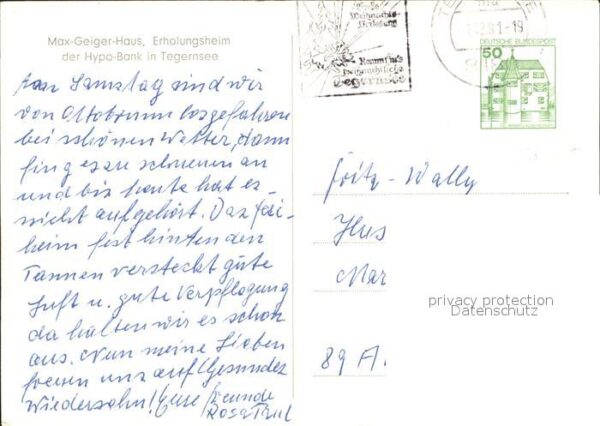 Max-Geiger-Haus, Erholungsheim
der Hypo-Bank in Tegernsee
Am Samstag sind wir
von Ottobrunn losgefahren
bei schönen Wetter, dann
fing es an schneien an
und bis heute hat es
nicht aufgehört. Das
heim fest hinten den
Tannen versteckt gute
Luft u. gute Verpflegung
da halten wir es schon
aus. Nun meine Lieben
freuen uns auf Gesundes
Wiedersehn! Eure Freunde
Rosa
Tegernsee
81-19
DEUTSCHE BUNDESPOST
50
Fritz - Wally
Hus
Mar
privacy protection
Datenschutz
89 A.